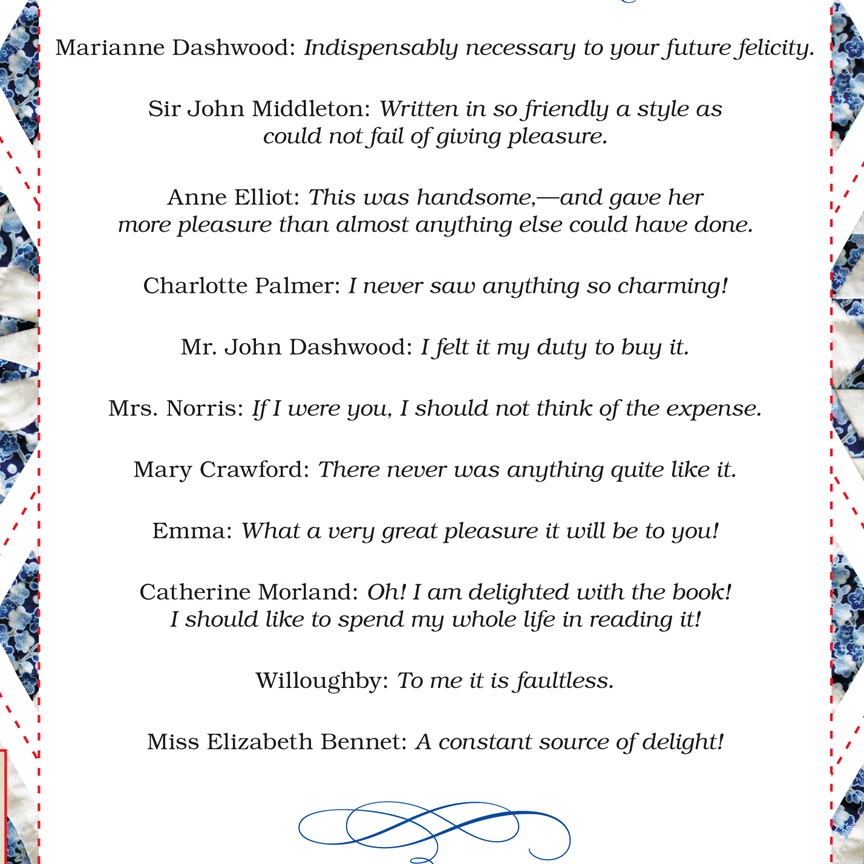 Marianne Dashwood: Indispensably necessary to your future felicity.
Sir John Middleton: Written in so friendly a style as
could not fail of giving pleasure.
Anne Elliot: This was handsome,—and gave her
more pleasure than almost anything else could have done.
Charlotte Palmer: I never saw anything so charming!
Mr. John Dashwood: I felt it my duty to buy it.
Mrs. Norris: If I were you, I should not think of the expense.
Mary Crawford: There never was anything quite like it.
Emma: What a very great pleasure it will be to you!
Catherine Morland: Oh! I am delighted with the book!
I should like to spend my whole life in reading it!
Willoughby: To me it is faultless.
Miss Elizabeth Bennet: A constant source of delight!